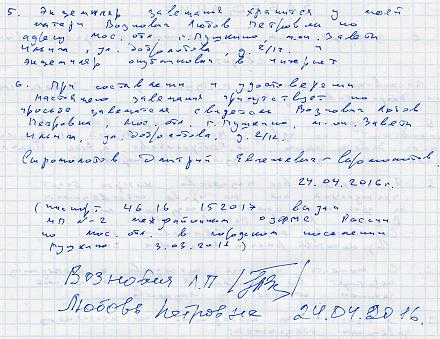 5. Экземпляр завещания хранится у моей
матери Возновия Любовь Петровны по
адресу Мос. отл, г. Пушкино, м-он. Заветы
Ильича, ул. Добролюбова, д. 2/12. и
экземпляр опубликован в интернет
6. При составлении и удостоверении
настоящего завещания присутствует по
просьбе завещателя свидетель Возновия Любовь
Петровна, Мос. отл г. Пушкино, м-он. Заветы
Ильича, ул. Добролюбова. д. 2/12.
Сыромолотов Дмитрий Евгеньевич
24.04.2016г.
(паспорт 46 16 152017 выдан
МП №2 межрайонным ОУФМС России
по мос. отл. в городском поселении
Пушкино 3.03.2011)
Возновия Л.П
Любовь Петровна 24.04.2016.